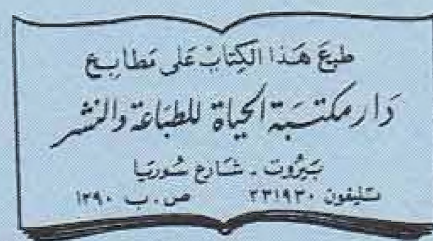 طبعَ هَذا الكِتابْ عَلى مَطابِع
دَار مكتَبة الحيَاة للطبَاعَة وَالنشر
بَيروت . شارع سُوريَا
تليفون ٢٣١٩٣٠ ص . ب ١٣٩٠